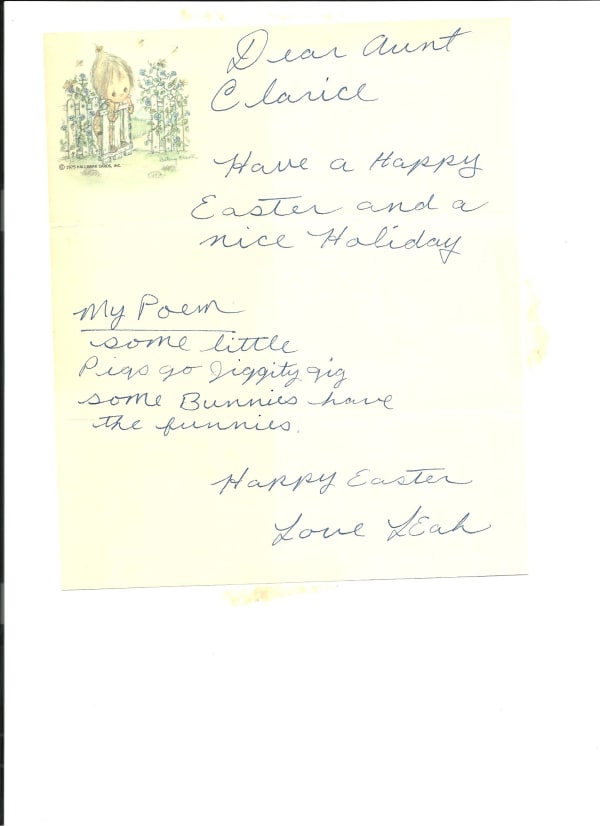 Dear Aunt
Clarice
© 1975 HALLMARK CARDS, INC.
Have a Happy
Easter and a
nice Holiday
My Poem
some little
Pigs go Jiggity gig
some Bunnies have
the funnies.
Happy Easter
Love LEah